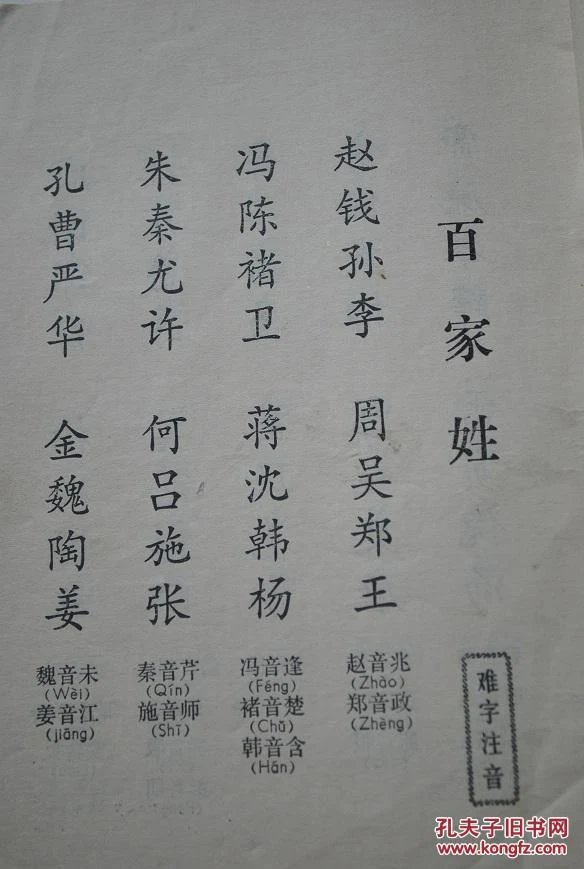 百家姓
难字注音
赵钱孙李 周吴郑王
赵音兆
(Zhào)
郑音政
(Zhèng)
冯陈褚卫 蒋沈韩杨
冯音逢
(Féng)
褚音楚
(Chǔ)
韩音含
(Hán)
朱秦尤许 何吕施张
秦音芹
(Qín)
施音师
(Shī)
孔曹严华 金魏陶姜
魏音未
(Wèi)
姜音江
(jiāng)
孔夫子旧书网
www.kongfz.com